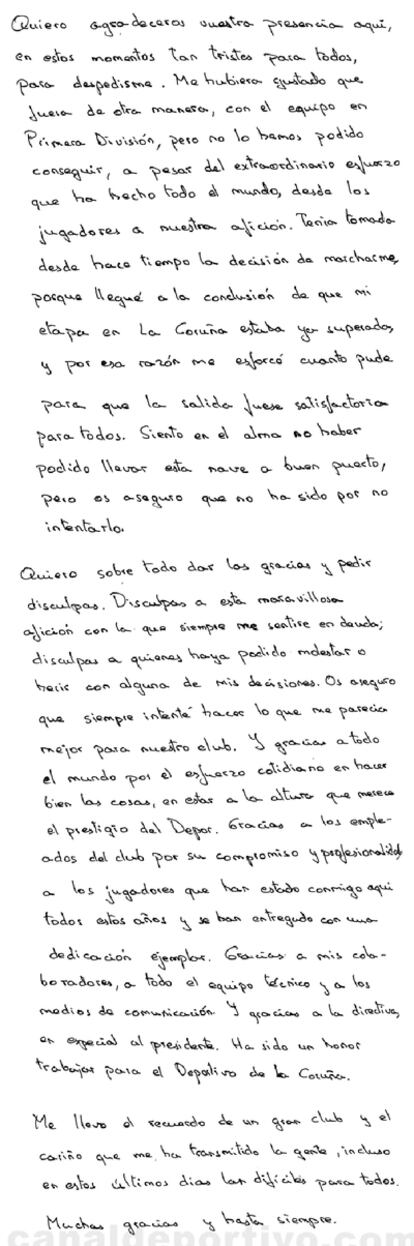 Quiero agradeceros vuestra presencia aquí,
en estos momentos tan tristes para todos,
para despedirme. Me hubiera gustado que
fuera de otra manera, con el equipo en
Primera División, pero no lo hemos podido
conseguir, a pesar del extraordinario esfuerzo
que ha hecho todo el mundo, desde los
jugadores a nuestra afición. Tenía tomada
desde hace tiempo la decisión de marcharme,
porque llegué a la conclusión de que mi
etapa en La Coruña estaba ya superada,
y por esa razón me esforcé cuanto pude
para que la salida fuese satisfactoria
para todos. Siento en el alma no haber
podido llevar esta nave a buen puerto,
pero os aseguro que no ha sido por no
intentarlo.
Quiero sobre todo dar las gracias y pedir
disculpas. Disculpas a esta maravillosa
afición con la que siempre me sentiré en deuda;
disculpas a quienes haya podido molestar o
herir con alguna de mis decisiones. Os aseguro
que siempre intenté hacer lo que me parecía
mejor para nuestro club. Y gracias a todo
el mundo por el esfuerzo cotidiano en hacer
bien las cosas, en estar a la altura que merece
el prestigio del Depor. Gracias a los emple-
ados del club por su compromiso y profesionalidad,
a los jugadores que han estado conmigo aquí
todos estos años y se han entregado con una
dedicación ejemplar. Gracias a mis cola-
boradores, a todo el equipo técnico y a los
medios de comunicación. Y gracias a la directiva,
en especial al presidente. Ha sido un honor
trabajar para el Deportivo de la Coruña.
Me llevo el recuerdo de un gran club y el
cariño que me ha transmitido la gente, incluso
en estos últimos días tan difíciles para todos.
Muchas gracias y hasta siempre.
canaldeportivo.com